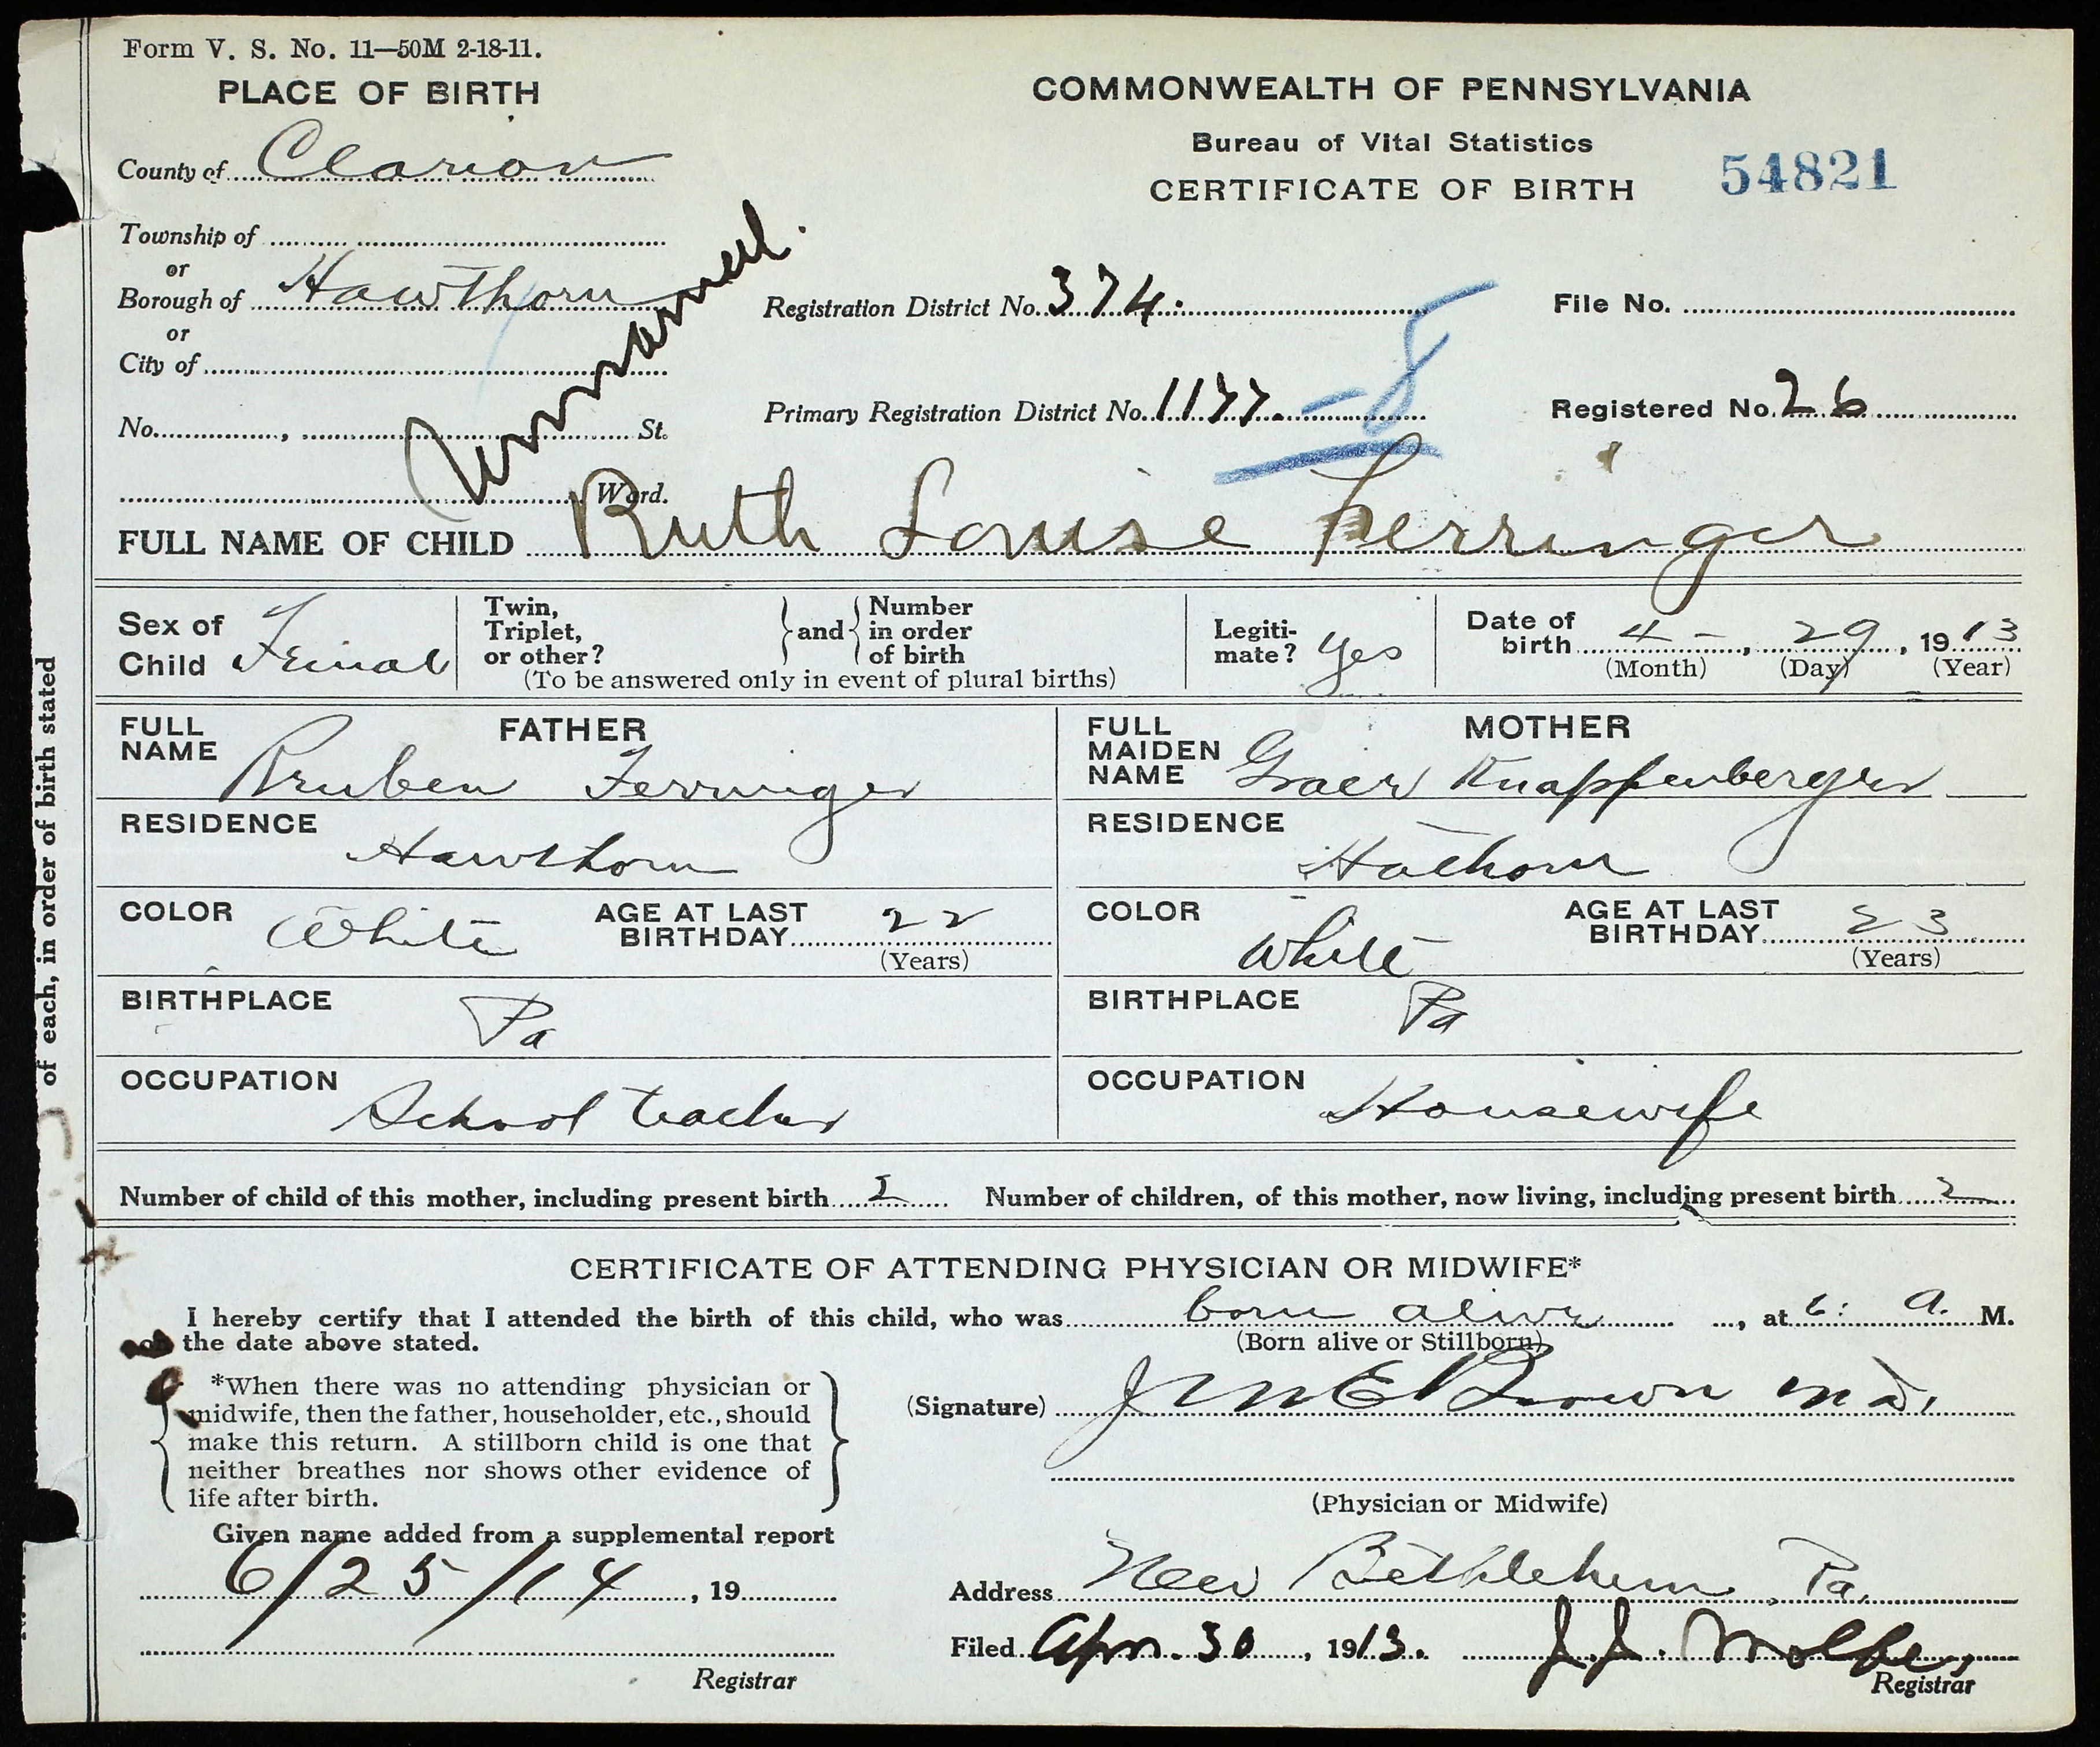 Form V. S. No. 11—50M 2-18-11.
PLACE OF BIRTH
County of Clarion
Township of
or
Borough of Hawthorn
or
City of
No. , St.
Ward.
Unnamed.
COMMONWEALTH OF PENNSYLVANIA
Bureau of Vital Statistics
CERTIFICATE OF BIRTH
54821
Registration District No. 374.
File No.
Primary Registration District No. 1177. -8
Registered No. 26
FULL NAME OF CHILD Ruth Louise Ferringer
Sex of Child Femal
Twin, Triplet, or other? and Number in order of birth
(To be answered only in event of plural births)
Legitimate? yes
Date of birth 4 - , 29, 1913
(Month) (Day) (Year)
FATHER
FULL NAME Reuben Ferringer
RESIDENCE Hawthorn
COLOR White AGE AT LAST BIRTHDAY 22
(Years)
BIRTHPLACE Pa
OCCUPATION School teacher
MOTHER
FULL MAIDEN NAME Grace Knappenberger
RESIDENCE Hathorn
COLOR White AGE AT LAST BIRTHDAY 23
(Years)
BIRTHPLACE Pa
OCCUPATION Housewife
Number of child of this mother, including present birth 2 Number of children, of this mother, now living, including present birth 2
CERTIFICATE OF ATTENDING PHYSICIAN OR MIDWIFE*
I hereby certify that I attended the birth of this child, who was born alive, at 6: A. M.
on the date above stated. (Born alive or Stillborn)
*When there was no attending physician or
midwife, then the father, householder, etc., should
make this return. A stillborn child is one that
neither breathes nor shows other evidence of
life after birth.
(Signature) Brown M.D.
(Physician or Midwife)
Given name added from a supplemental report
6/25/14, 19
Registrar
Address New Bethlehem, Pa.
Filed Apr. 30, 1913. J. J.
Registrar
of each, in order of birth stated